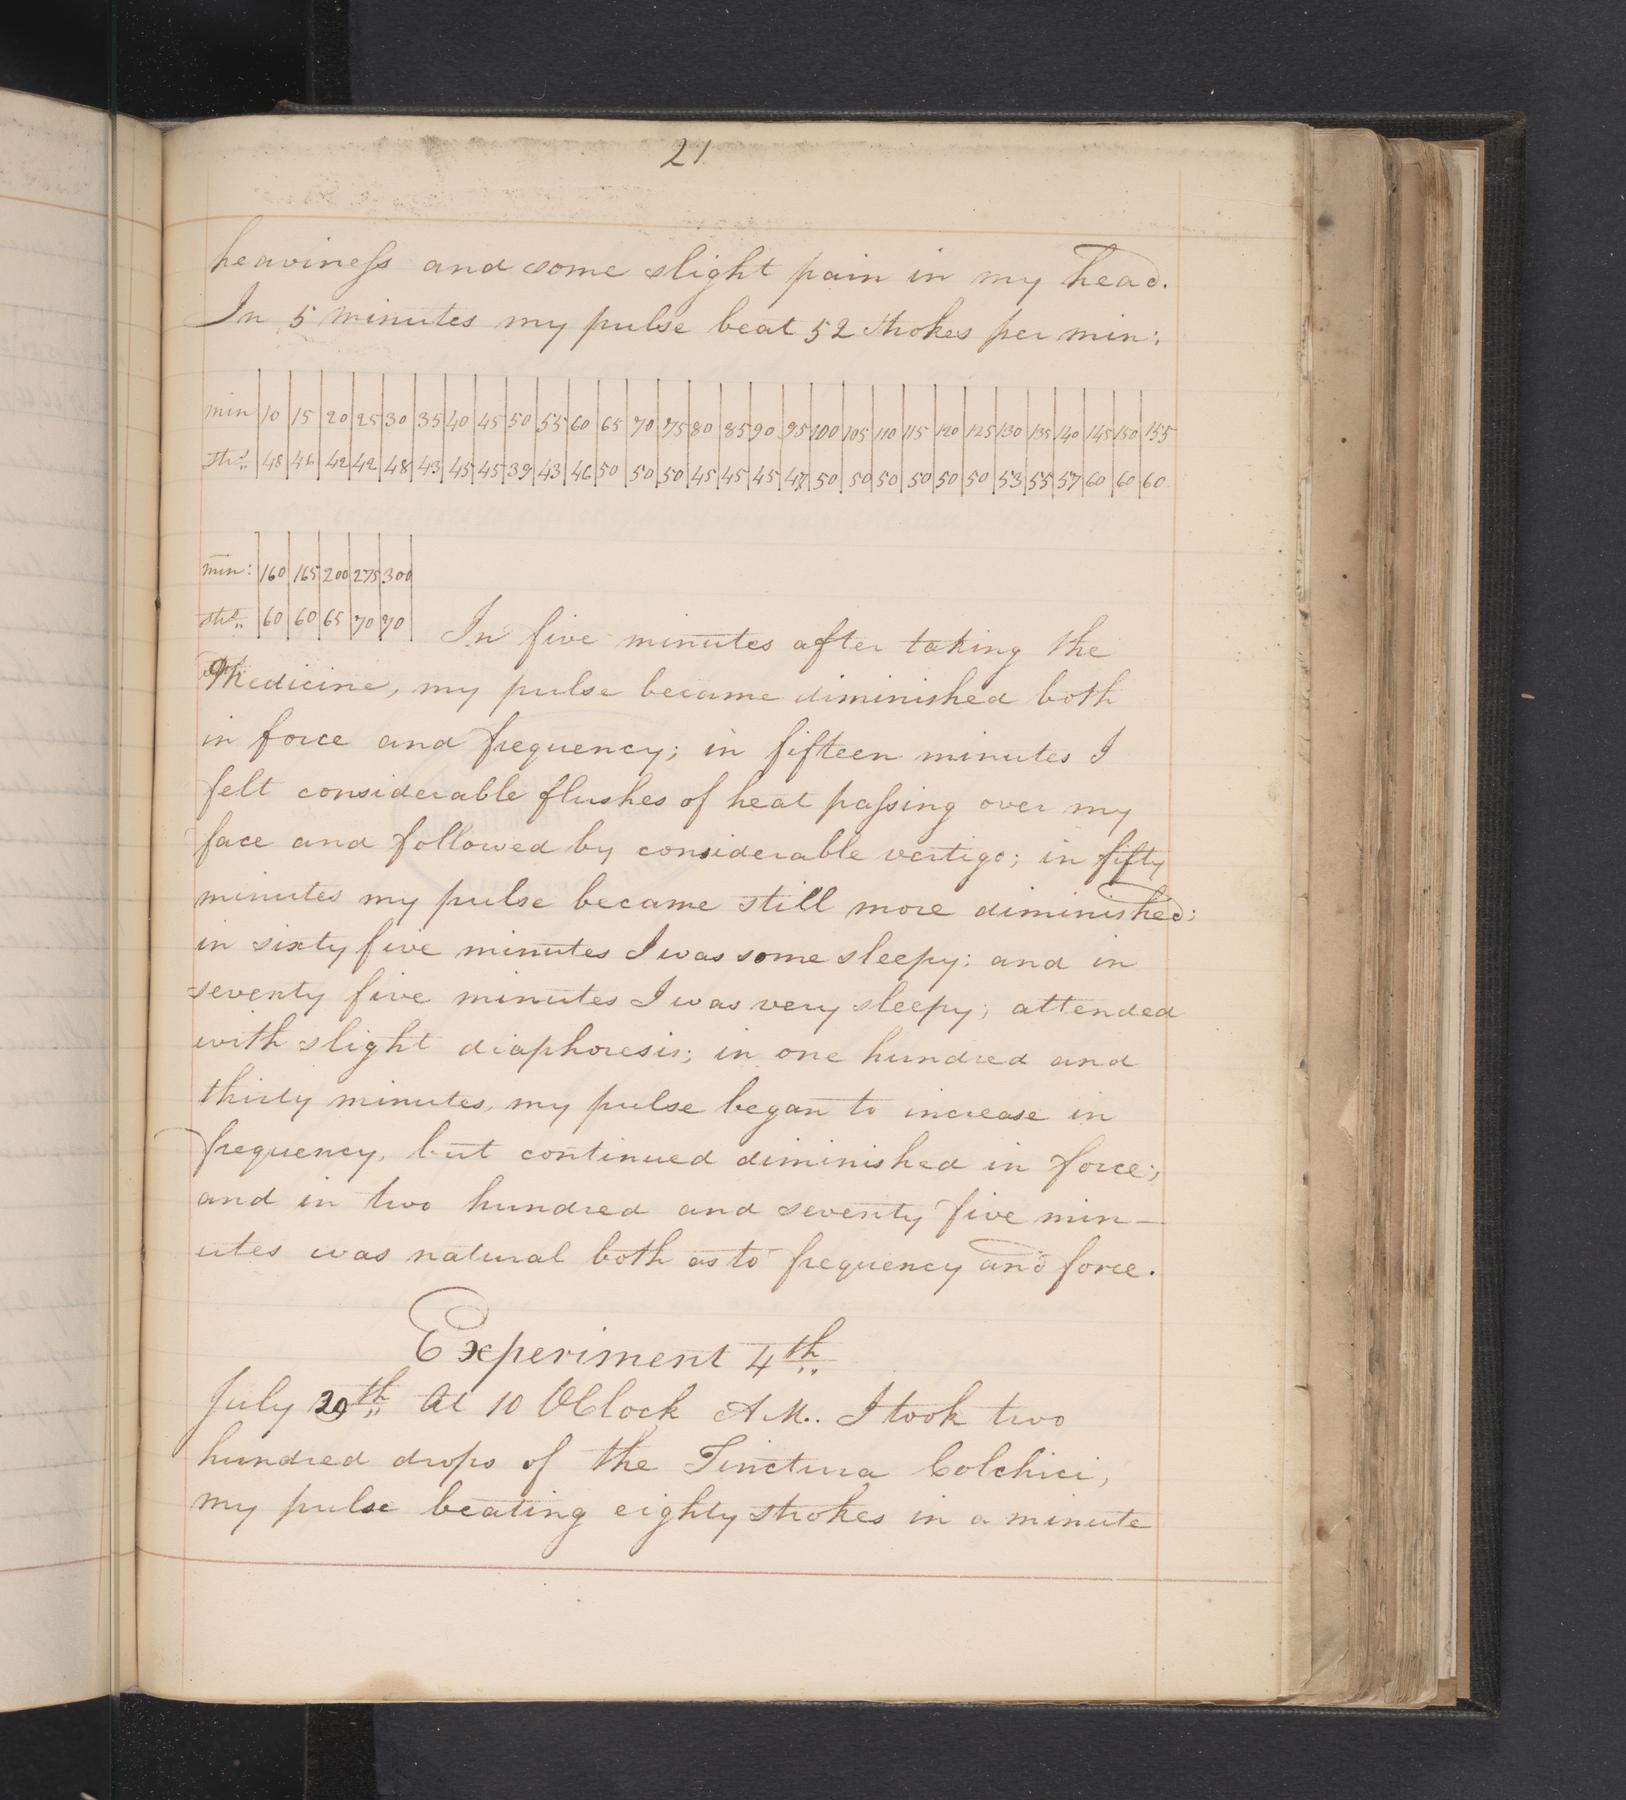 21
heaviness and some slight pain in my head.
In 5 minutes my pulse beat 52 strokes per min:
min 10 15 20 25 30 35 40 45 50 55 60 65 70 75 80 85 90 95 100 105 110 115 120 125 130 135 140 145 150 155
strs 48 46 42 42 48 43 45 45 39 43 46 50 50 50 45 45 45 47 50 50 50 50 50 50 53 55 57 60 60 60
min: 160 165 200 275 300
strs 60 60 65 70 70 In five minutes after taking the
Medicine, my pulse became diminished both
in force and frequency; in fifteen minutes I
felt considerable flushes of heat passing over my
face and followed by considerable vertigo; in fifty
minutes my pulse became still more diminished;
in sixty five minutes I was some sleepy; and in
seventy five minutes I was very sleepy; attended
with slight diaphoresis; in one hundred and
thirty minutes, my pulse began to increase in
frequency, but continued diminished in force;
and in two hundred and seventy five min-
utes was natural both as to frequency and force.
Experiment 4th
July th At 10 OClock A.M. I took two
hundred drops of the Tinctura Colchici,
my pulse beating eighty strokes in a minute